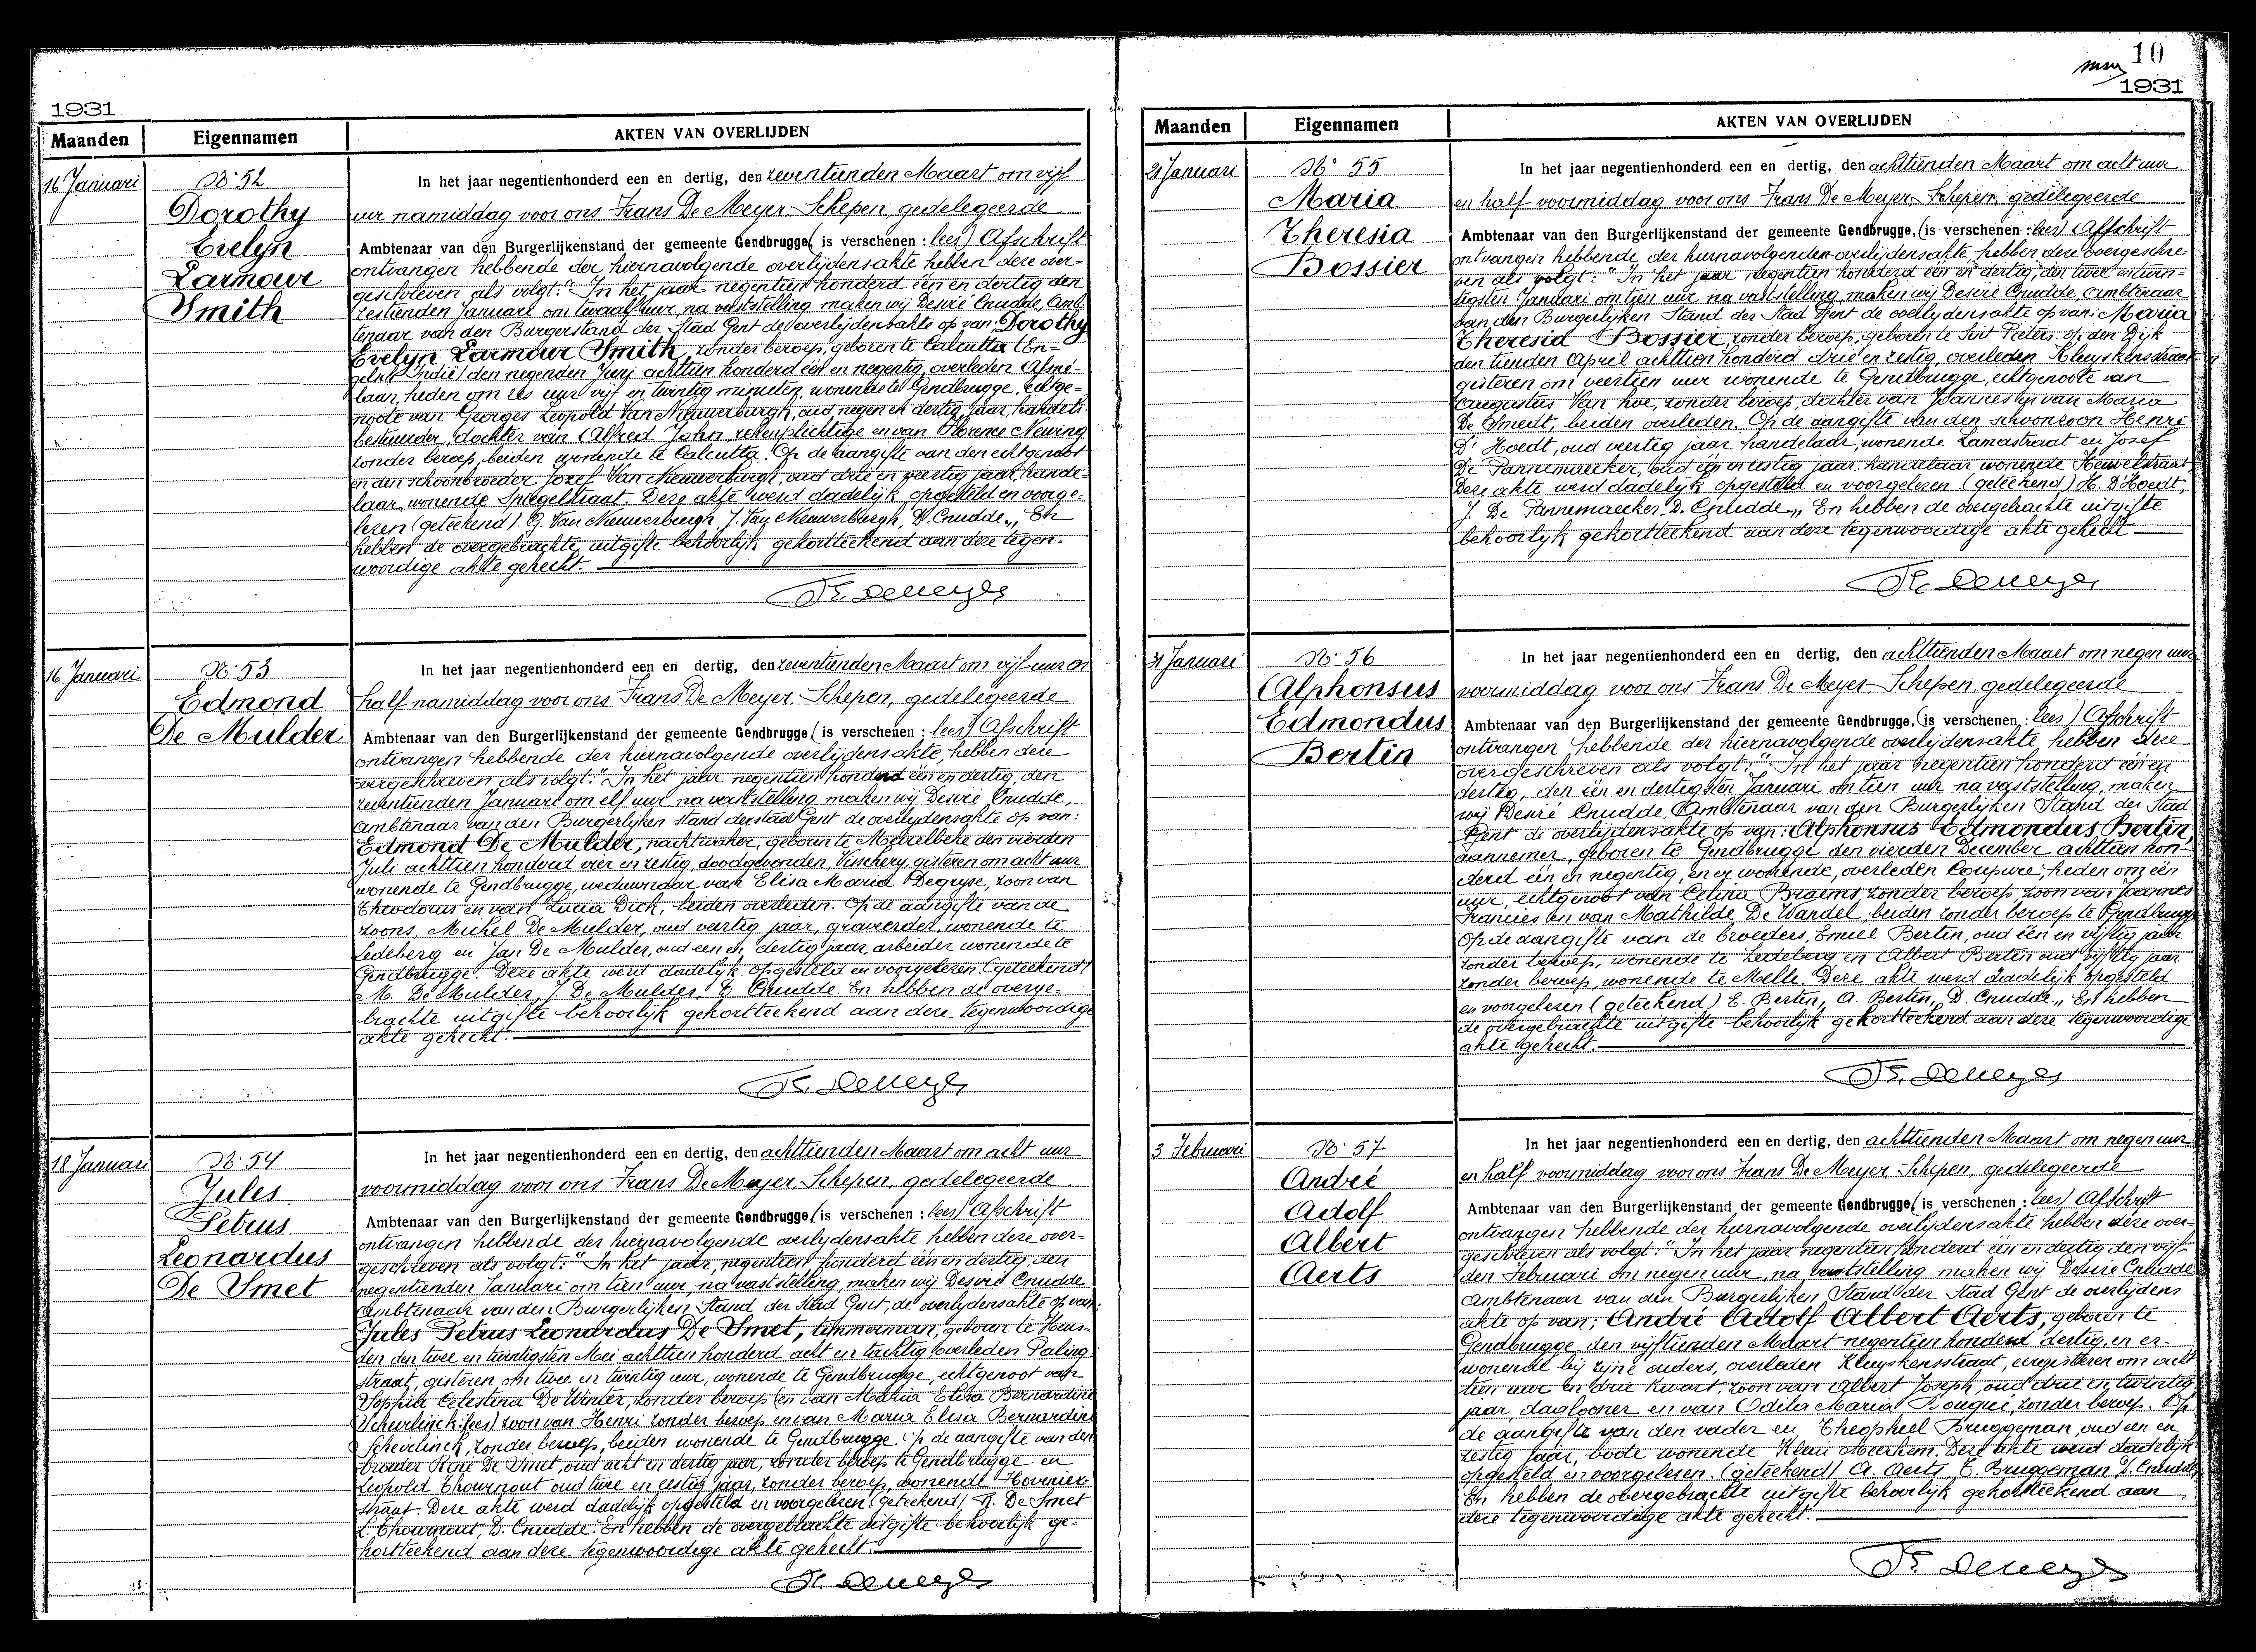 1931
Maanden Eigennamen AKTEN VAN OVERLIJDEN
16 Januari
No 52
Dorothy
Evelyn
Larmour
Smith
In het jaar negentienhonderd een en dertig, den zeventienden Maart om vijf
uur namiddag voor ons Frans De Meyer-Schepen, gedelegeerde
Ambtenaar van den Burgerlijkenstand der gemeente Gendbrugge, (is verschenen : lees) Afschrift
ontvangen hebbende der hiernavolgende overlijdensakte hebben deze over-
geschreven als volgt: "In het jaar negentien honderd één en dertig den
zestienden Januari om twaalf uur, na vaststelling maken wij Desiré Cnudde, Amb-
tenaar van den Burgerstand der Stad Gent de overlijdensakte op van: Dorothy
Evelyn Larmour Smith, zonder beroep, geboren te Calcutta (En-
gelsch Indië) den negenden Juni achttien honderd één en negentig, overleden Afsné-
laan, heden om zes uur vijf en twintig minuten, wonende te Gendbrugge, echtge-
noote van Georges Leopold Van Nieuwerburgh, oud negen en dertig jaar, handels-
bestuurder, dochter van Alfred John, rekenplichtige en van Florence Newing
zonder beroep, beiden wonende te Calcutta. Op de aangifte van den echtgenoot
en den schoonbroeder Jozef Van Nieuwerburgh, oud drie en veertig jaar, hande-
laar, wonende Spiegelstraat. Deze akte werd dadelijk opgesteld en voorge-
lezen (geteekend). G. Van Nieuwerburgh, J. Van Nieuwerburgh, D. Cnudde.,, En
hebben de overgebrachte uitgifte behoorlijk gekortteekend aan deze tegen-
woordige akte gehecht.
Fr. Demeyer
16 Januari
No 53
Edmond
De Mulder
In het jaar negentienhonderd een en dertig, den zeventienden Maart om vijf uur en
half namiddag voor ons Frans De Meyer-Schepen, gedelegeerde
Ambtenaar van den Burgerlijkenstand der gemeente Gendbrugge, (is verschenen : lees) Afschrift
ontvangen hebbende der hiernavolgende overlijdensakte, hebben deze
overgeschreven als volgt: "In het jaar negentien honderd één en dertig, den
zeventienden Januari om elf uur na vaststelling maken wij Desiré Cnudde,
Ambtenaar van den Burgerlijken stand der stad Gent de overlijdensakte op van:
Edmond De Mulder, nachtwaker, geboren te Moerelbeke den vierden
Juli achttien honderd vier en zestig, doodgevonden, Visscherij, gisteren om acht uur
wonende te Gendbrugge, weduwnaar van Elisa Maria Degryse, zoon van
Theodorus en van Lucia Dick, beiden overleden. Op de aangifte van de
zoons, Michel De Mulder, oud veertig jaar, graveerder, wonende te
Ledeberg en Jan De Mulder, oud een en dertig jaar, arbeider wonende te
Gendbrugge. Deze akte werd dadelijk opgesteld en voorgelezen. (geteekend)
M. De Mulder, J. De Mulder, D. Cnudde. En hebben de overge-
brachte uitgifte behoorlijk gekortteekend aan deze tegenwoordige
akte gehecht.
Fr. Demeyer
18 Januari
No 54
Jules
Petrus
Leonardus
De Smet
In het jaar negentienhonderd een en dertig, den achttienden Maart om acht uur
voormiddag voor ons Frans De Meyer-Schepen, gedelegeerde
Ambtenaar van den Burgerlijkenstand der gemeente Gendbrugge, (is verschenen : lees) Afschrift
ontvangen hebbende der hiernavolgende overlijdensakte hebben deze over-
geschreven als volgt: "In het jaar, negentien honderd één en dertig, den
negentienden Januari om tien uur, na vaststelling, maken wij Desiré Cnudde
Ambtenaar van den Burgerlijken Stand der Stad Gent, de overlijdensakte op van:
Jules Petrus Leonardus De Smet, timmerman, geboren te Heus-
den den twee en twintigsten Mei achttien honderd acht en tachtig overleden Paling-
straat, gisteren om twee en twintig uur, wonende te Gendbrugge, echtgenoot van
Sophia Celestina De Winter, zonder beroep (en van Maria Elisa Bernardine
Scheirlinck: lees) zoon van Henri zonder beroep en van Maria Elisa Bernardine
Scheirlinck, zonder beroep, beiden wonende te Gendbrugge. Op de aangifte van den
broeder René De Smet, oud acht en dertig jaar, zonder beroep te Gendbrugge en
Leopold Thournout oud twee en zestig jaar, zonder beroep, wonende Hovenier-
straat. Deze akte werd dadelijk opgesteld en voorgelezen. (geteekend) R. De Smet
L. Thournout, D. Cnudde. En hebben de overgebrachte uitgifte behoorlijk ge-
kortteekend aan deze tegenwoordige akte gehecht.
Fr. Demeyer
10
1931
Maanden Eigennamen AKTEN VAN OVERLIJDEN
21 Januari
No 55
Maria
Theresia
Bossier
In het jaar negentienhonderd een en dertig, den achttienden Maart om acht uur
en half voormiddag voor ons Frans De Meyer-Schepen, gedelegeerde
Ambtenaar van den Burgerlijkenstand der gemeente Gendbrugge, (is verschenen : lees) Afschrift
ontvangen hebbende der hiernavolgenden overlijdensakte, hebben deze overgeschre-
ven als volgt: "In het jaar negentien honderd één en dertig, den twee en twin-
tigsten Januari om tien uur, na vaststelling, maken wij Desiré Cnudde, Ambtenaar
van den Burgerlijken Stand der Stad Gent de overlijdensakte op van: Maria
Theresia Bossier, zonder beroep, geboren te Sint Pieters op den Dijk
den tienden April achttien honderd drie en zestig, overleden Kluyskensstraat
gisteren om veertien uur wonende te Gendbrugge, echtgenoote van
Augustus Van hoe, zonder beroep, dochter van Joannes en van Maria
De Smedt, beiden overleden. Op de aangifte van den schoonzoon Henri
D'Hoedt, oud veertig jaar, handelaar, wonende Lamastraat en Josef
De Pannemaecker, oud één en zestig jaar, handelaar wonende Heuvelstraat,
Deze akte werd dadelijk opgesteld en voorgelezen (geteekend) H. D'Hoedt,
J. De Pannemaecker, D. Cnudde.,, En hebben de overgebrachte uitgifte
behoorlijk gekortteekend aan deze tegenwoordige akte gehecht
Fr. Demeyer
31 Januari
No 56
Alphonsus
Edmondus
Bertin
In het jaar negentienhonderd een en dertig, den achttienden Maart om negen uur
voormiddag voor ons Frans De Meyer-Schepen, gedelegeerde
Ambtenaar van den Burgerlijkenstand der gemeente Gendbrugge, (is verschenen : lees) Afschrift
ontvangen hebbende der hiernavolgende overlijdensakte hebben deze
overgeschreven als volgt: "In het jaar negentien honderd één en
dertig, den één en dertigsten Januari om tien uur na vaststelling, maken
wij Desiré Cnudde, Ambtenaar van den Burgerlijken Stand der Stad
Gent de overlijdensakte op van: Alphonsus Edmondus Bertin,
aannemer, geboren te Gendbrugge den vierden December achttien hon-
derd één en negentig, en er wonende, overleden Coupure, heden om één
uur, echtgenoot van Celina Braems, zonder beroep, zoon van Joannes
Francies en van Mathilde De Wandel, beiden zonder beroep te Gendbrugge
Op de aangifte van de broeders, Emiel Bertin, oud één en vijftig jaar
zonder beroep, wonende te Ledeberg en Albert Bertin oud vijftig jaar
zonder beroep, wonende te Melle. Deze akte werd dadelijk opgesteld
en voorgelezen (geteekend) E. Bertin, A. Bertin, D. Cnudde.,, En hebben
de overgebrachte uitgifte behoorlijk gekortteekend aan deze tegenwoordige
akte gehecht.
Fr. Demeyer
3 Februari
No 57
André
Adolf
Albert
Aerts
In het jaar negentienhonderd een en dertig, den achttienden Maart om negen uur
en half voormiddag voor ons Frans De Meyer-Schepen, gedelegeerde
Ambtenaar van den Burgerlijkenstand der gemeente Gendbrugge, (is verschenen : lees) Afschrift
ontvangen hebbende der hiernavolgende overlijdensakte hebben deze over-
geschreven als volgt: "In het jaar negentien honderd één en dertig den vijf-
den Februari om negen uur, na vaststelling maken wij Desiré Cnudde
Ambtenaar van den Burgerlijken Stand der Stad Gent de overlijdens
akte op van: André Adolf Albert Aerts, geboren te
Gendbrugge, den vijftienden Maart negentien honderd dertig, en er
wonende bij zijne ouders, overleden Kluyskensstraat, eergisteren om acht
tien uur en drie kwart, zoon van Albert Joseph, oud drie en twintig
jaar dagloner en van Odila Maria Rouqué, zonder beroep. Op
de aangifte van den vader en Theophiel Bruggeman, oud een en
zestig jaar, bode wonende Klein Meerhem. Deze akte werd dadelijk
opgesteld en voorgelezen. (geteekend) A. Aerts, T. Bruggeman, D. Cnudde,
En hebben de overgebrachte uitgifte behoorlijk gekortteekend aan
deze tegenwoordige akte gehecht.
Fr. Demeyer